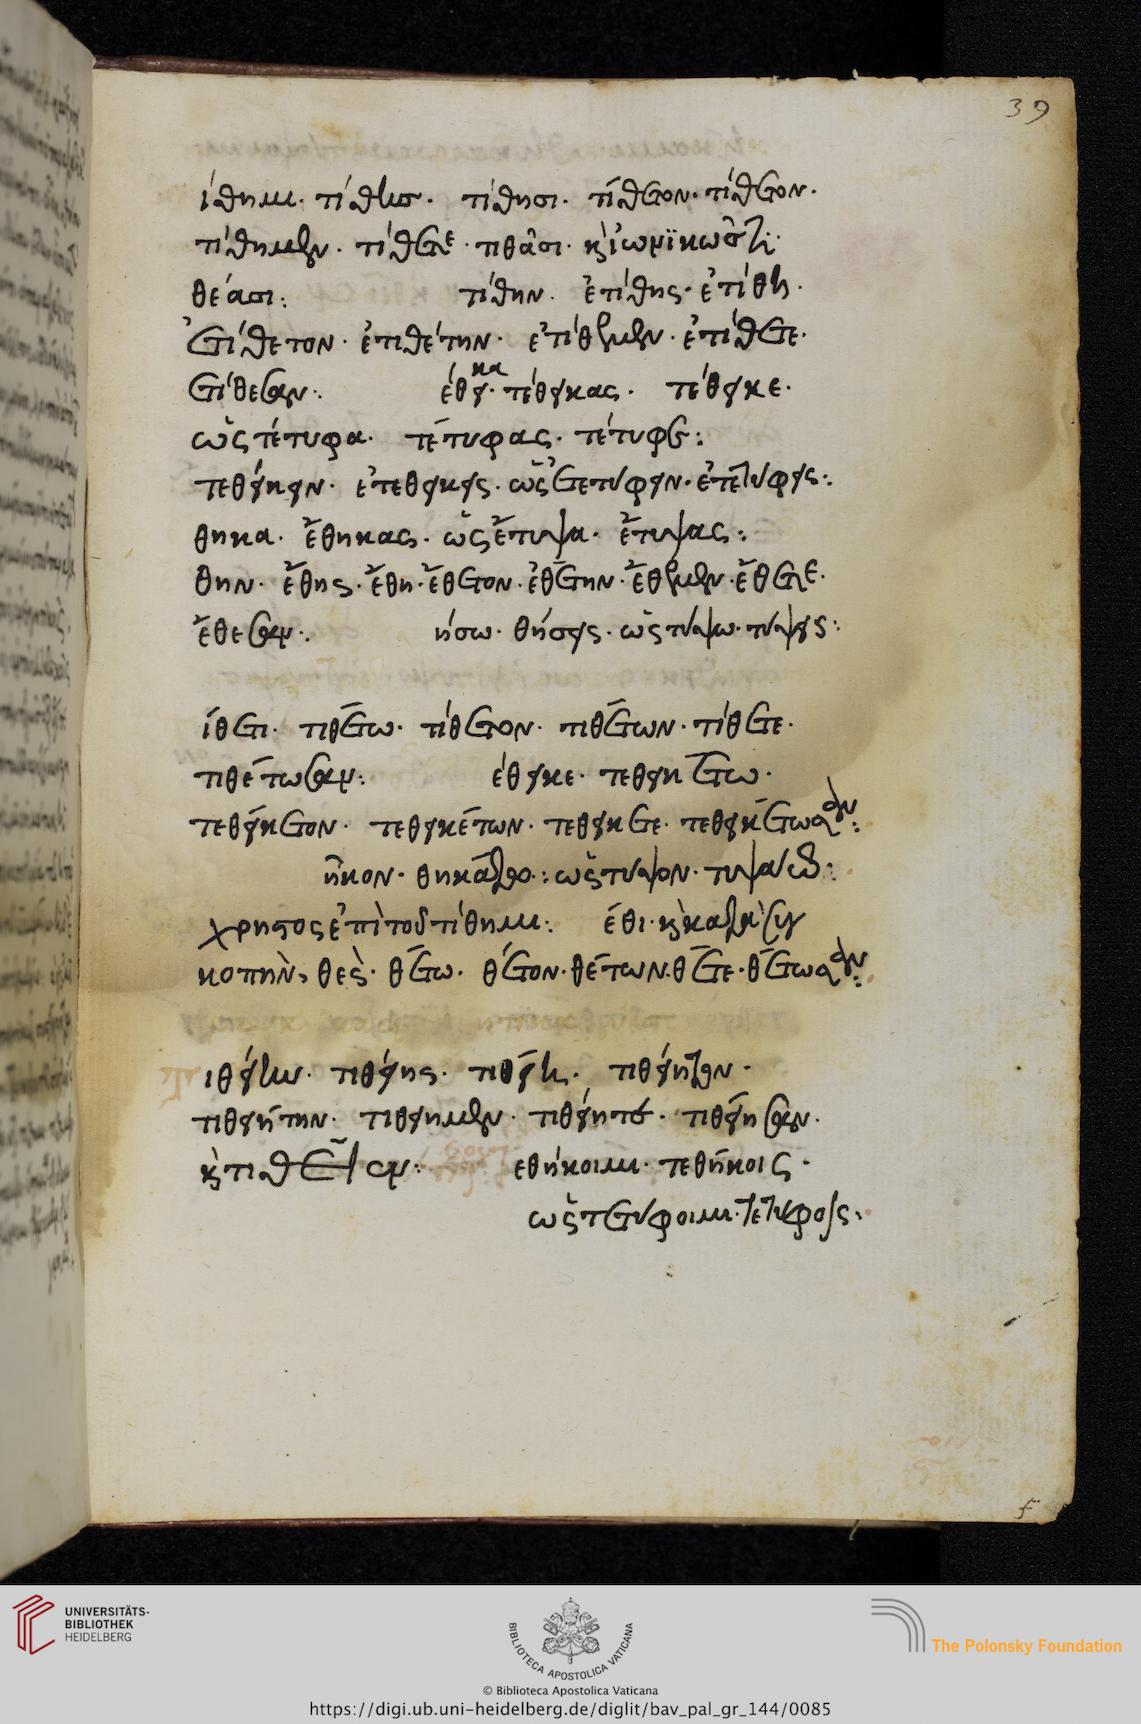 39
ίθημι· τίθης· τίθησι· τίθετον· τίθετον·
τίθημεν· τίθετε· τιθᾶσι· κ̀ ἰωνϊκῶς
θέασι: τίθην· ἐτίθης· ἐτίθη·
ἐτίθετον· ἐτιθέτην· ἐτίθεμεν· ἐτίθετε·
τίθεσαν: έθεικα· τέθεικας· τέθεικε·
ὡς τέτυφα· τέτυφας· τέτυφε:
τεθείκειν· ἐτεθείκεις· ὡς ἐτετύφειν· ἐτετύφεις:
θηκα· ἔθηκας· ὡς ἔτυψα· ἔτυψας:
θην· ἔθης· ἔθη· ἔθετον· ἐθέτην· ἔθεμεν· ἔθετε·
ἔθεσαν: ήσω· θήσεις· ὡς τύψω· τύψεις:
ίθετι· τιθέτω· τίθετον· τιθέτων· τίθετε·
τιθέτωσαν: έθεικε· τεθεικέτω·
τεθείκετον· τεθεικέτων· τεθείκετε· τεθεικέτωσαν:
ῆκον· θηκάτω: ὡς τύψον· τυψάτω:
χρηστος ἐπὶ τοῦ τίθημι: έθι· κ̀
κοπὴν, θές· θέτω· θέτον· θέτων· θέτε· θέτωσαν:
ιθείην· τιθείης· τιθείη· τιθείητον·
τιθειήτην· τιθείημεν· τιθείητε· τιθείησαν·
κ̀ τιθεῖεν: εθήκοιμι· τεθήκοις·
ὡς τετύφοιμι· τετύφοις:
f
UNIVERSITÄTS-
BIBLIOTHEK
HEIDELBERG
BIBLIOTECA APOSTOLICA VATICANA
The Polonsky Foundation
© Biblioteca Apostolica Vaticana
https://digi.ub.uni-heidelberg.de/diglit/bav_pal_gr_144/0085